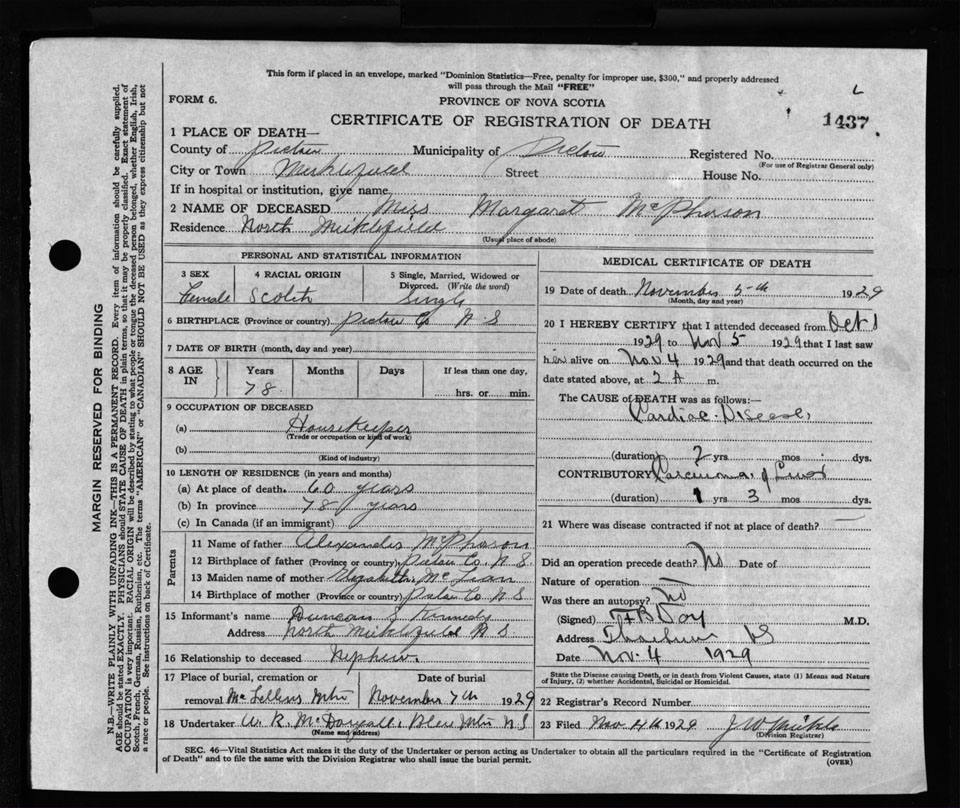 This form if placed in an envelope, marked "Dominion Statistics—Free, penalty for improper use, $300," and properly addressed
will pass through the Mail "FREE"
FORM 6.
PROVINCE OF NOVA SCOTIA
L
CERTIFICATE OF REGISTRATION OF DEATH
1437
1 PLACE OF DEATH—
County of Pictou Municipality of Pictou Registered No.
(For use of Registrar General only)
City or Town Micklefield Street House No.
If in hospital or institution, give name
2 NAME OF DECEASED Miss Margaret McPherson
Residence North Micklefield
(Usual place of abode)
PERSONAL AND STATISTICAL INFORMATION
3 SEX 4 RACIAL ORIGIN 5 Single, Married, Widowed or Divorced. (Write the word)
Female Scotch Single
6 BIRTHPLACE (Province or country) Pictou Co N S
7 DATE OF BIRTH (month, day and year)
8 AGE IN Years Months Days If less than one day,
78 hrs. or min.
9 OCCUPATION OF DECEASED
(a) Housekeeper
(Trade or occupation or kind of work)
(b)
(Kind of industry)
10 LENGTH OF RESIDENCE (in years and months)
(a) At place of death 60 years
(b) In province 78 years
(c) In Canada (if an immigrant)
Parents
11 Name of father Alexander McPherson
12 Birthplace of father (Province or country) Pictou Co. N. S
13 Maiden name of mother Elizabeth McLean
14 Birthplace of mother (Province or country) Pictou Co N S
15 Informant's name Duncan J Kennedy
Address North Micklefield N S
16 Relationship to deceased Nephew.
17 Place of burial, cremation or removal Date of burial
McLellens Mtn November 7th 1929
18 Undertaker W. R. McDougall. Blue Mtn N S
(Name and address)
MEDICAL CERTIFICATE OF DEATH
19 Date of death November 5th 1929
(Month, day and year)
20 I HEREBY CERTIFY that I attended deceased from Oct 1
1929 to Nov 5 1929 that I last saw
her alive on Nov. 4 1929 and that death occurred on the
date stated above, at 2 A m.
The CAUSE of DEATH was as follows:
Cardiac Disease
(duration) 2 yrs mos dys.
CONTRIBUTORY Carcinoma of
(duration) 1 yrs 3 mos. dys.
21 Where was disease contracted if not at place of death? —
Did an operation precede death? No Date of
Nature of operation
Was there an autopsy? No
(Signed) F B Day M.D.
Address Thorburn NS
Date Nov. 4 1929
State the Disease causing Death, or in death from Violent Causes, state (1) Means and Nature
of Injury, (2) whether Accidental, Suicidal or Homicidal.
22 Registrar's Record Number
23 Filed Nov 4th 1929
(Division Registrar)
SEC. 46—Vital Statistics Act makes it the duty of the Undertaker or person acting as Undertaker to obtain all the particulars required in the "Certificate of Registration
of Death" and to file the same with the Division Registrar who shall issue the burial permit.
(OVER)
MARGIN RESERVED FOR BINDING
N.B.—WRITE PLAINLY WITH UNFADING INK—THIS IS A PERMANENT RECORD. Every item of information should be carefully supplied.
AGE should be stated EXACTLY. PHYSICIANS should STATE CAUSE OF DEATH in plain terms, so that it may be properly classified. Exact statement of
OCCUPATION is very important. RACIAL ORIGIN will be described by stating to what people or tongue the deceased person belonged, whether English, Irish,
Scotch, French, German, Russian, Ruthenian, etc. The terms "AMERICAN" or "CANADIAN" SHOULD NOT BE USED as they express citizenship but not
a race or people. See instructions on back of Certificate.